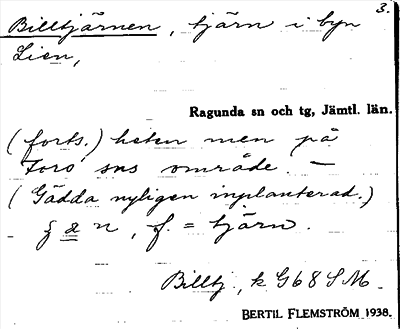 3.
Billtjärnen, tjärn i byn
Lien,
Ragunda sn och tg, Jämtl. län.
(forts.) heten men på
Fors sns område. —
(Gädda nyligen inplanterad.)
n, f. = tjärn.
Billtj., k G68SM.
BERTIL FLEMSTRÖM 1938.